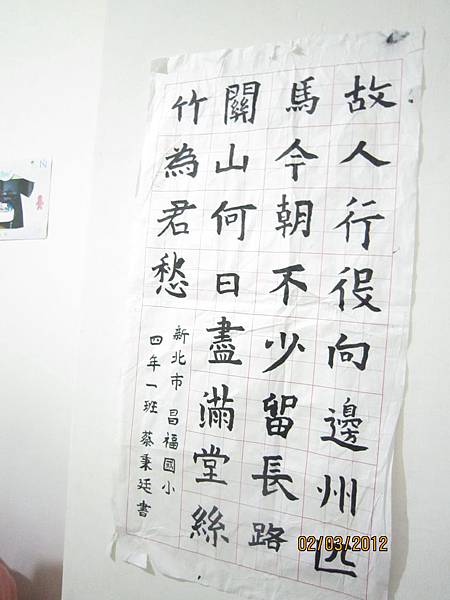 故人行役向邊州匹
馬今朝不少留長路
關山何日盡滿堂絲
竹為君愁
新北市 昌福國小
四年一班 蔡秉廷書
02/03/2012